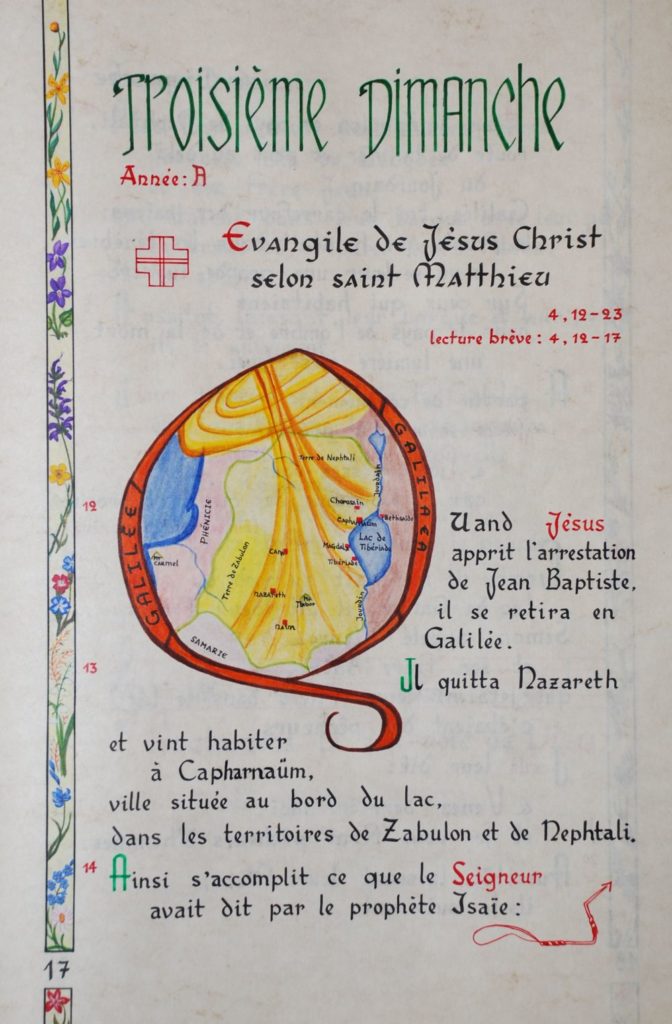 Troisième Dimanche
Année: A
Evangile de Jésus Christ
selon saint Matthieu
4, 12-23
lecture brève : 4, 12-17
GALILÉE
GALILAEA
Terre de Nephtali
Jourdain
Chorazaïn
Capharnaüm
Bethsaïde
Lac de
Tibériade
Magdala
Tibériade
PHÉNICIE
Carmel
Terre de Zabulon
Cana
Nazareth
Mt
Thabor
Naïm
Jourdain
SAMARIE
12
Uand Jésus
apprit l'arrestation
de Jean Baptiste,
il se retira en
Galilée.
13
Il quitta Nazareth
et vint habiter
à Capharnaüm,
ville située au bord du lac,
dans les territoires de Zabulon et de Nephtali.
14
Ainsi s'accomplit ce que le Seigneur
avait dit par le prophète Isaïe :
17